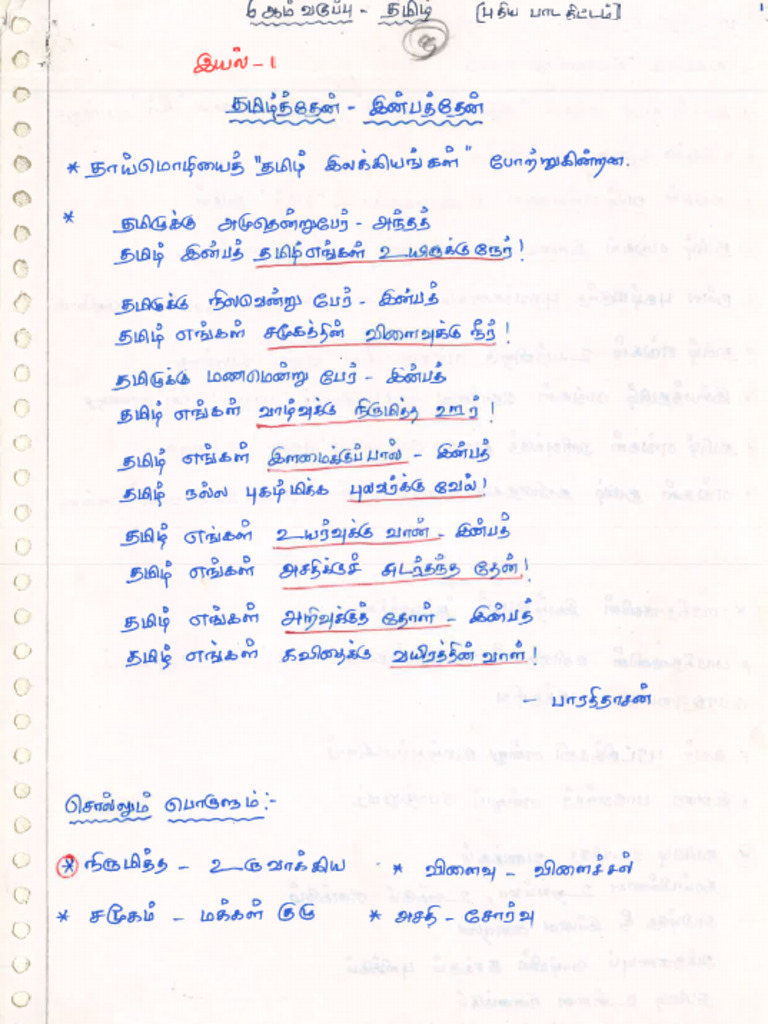 6 ஆம் வகுப்பு - தமிழ் [புதிய பாடதிட்டம்]
இயல் - 1
தமிழ்த்தேன் - இன்பத்தேன்
* தாய்மொழியைத் "தமிழ் இலக்கியங்கள்" போற்றுகின்றன.
* தமிழுக்கு அமுதென்றுபேர் - அந்தத்
தமிழ் இன்பத் தமிழ்எங்கள் உயிருக்கு நேர்!
தமிழுக்கு நிலவென்று பேர் - இன்பத்
தமிழ் எங்கள் சமூகத்தின் விளைவுக்கு நீர்!
தமிழுக்கு மணமென்று பேர் - இன்பத்
தமிழ் எங்கள் வாழ்வுக்கு நிருமித்த ஊர்!
தமிழ் எங்கள் இளமைக்குப் பால் - இன்பத்
தமிழ் நல்ல புகழ்மிக்க புலவர்க்கு வேல்!
தமிழ் எங்கள் உயர்வுக்கு வான் - இன்பத்
தமிழ் எங்கள் அசதிக்குச் சுடர்தந்த தேன்!
தமிழ் எங்கள் அறிவுக்குத் தோள் - இன்பத்
தமிழ் எங்கள் கவிதைக்கு வயிரத்தின் வாள்!
- பாரதிதாசன்
சொல்லும் பொருளும்:-
* நிருமித்த - உருவாக்கிய * விளைவு - விளைச்சல்
* சமூகம் - மக்கள் குழு * அசதி - சோர்வு